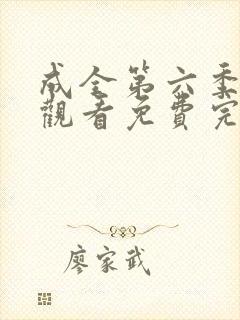 成全第六季
觀看免費完
廖家武